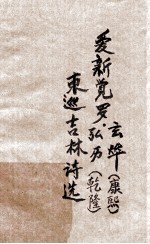 爱新觉罗 玄烨(康熙)
弘历(乾隆)
东巡吉林诗选